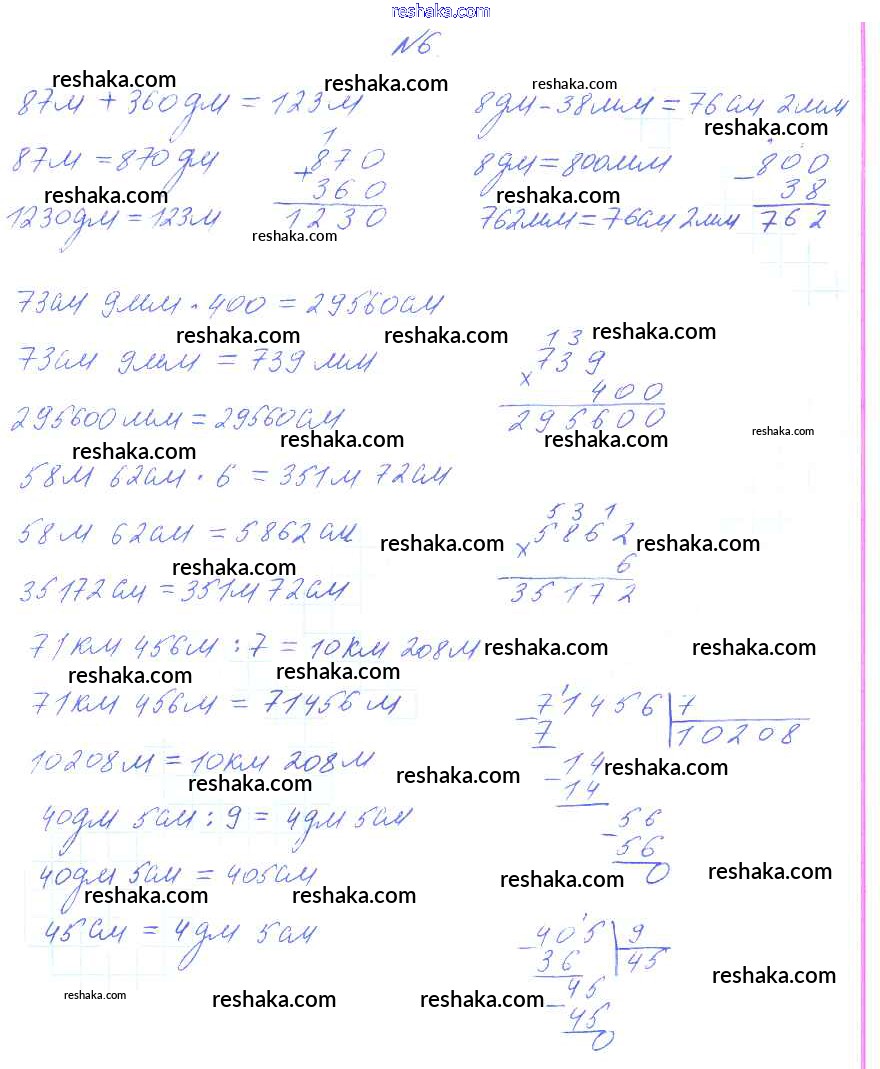 reshaka.com
№6.
reshaka.com reshaka.com reshaka.com
87м + 360дм = 123м 8дм - 38мм = 76см 2мм
reshaka.com
87м = 870дм 1 870 8дм = 800мм 800
reshaka.com + 360 reshaka.com - 38
1230дм = 123м 1230 762мм = 76см 2мм 762
reshaka.com
73см 9мм · 400 = 29560см
reshaka.com reshaka.com reshaka.com
73см 9мм = 739мм 13 739
× 400
295600мм = 29560см 295600
reshaka.com reshaka.com reshaka.com reshaka.com
58м 62см · 6 = 351м 72см
58м 62см = 5862см 531 5862
reshaka.com reshaka.com reshaka.com × 6
35172см = 351м 72см 35172
71км 456м : 7 = 10км 208м reshaka.com reshaka.com
reshaka.com reshaka.com
71км 456м = 71456м 71456 | 7
- 7 10208
10208м = 10км 208м - 14
reshaka.com reshaka.com reshaka.com
14
40дм 5см : 9 = 4дм 5см - 56
56
40дм 5см = 405см 0
reshaka.com reshaka.com reshaka.com reshaka.com
45см = 4дм 5см - 405 | 9
36 45
reshaka.com
- 45
reshaka.com reshaka.com reshaka.com
45
0